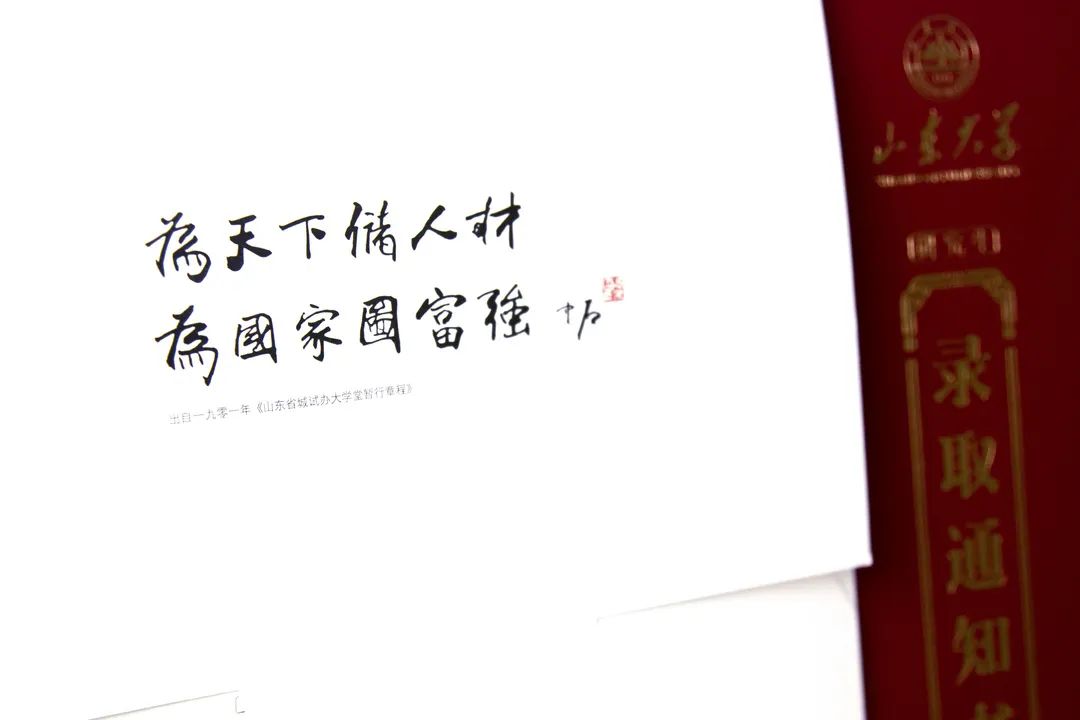 為天下儲人材
為國家圖富強
出自一九零一年《山东省城试办大学堂暂行章程》
山东大学
研究生
录取通知